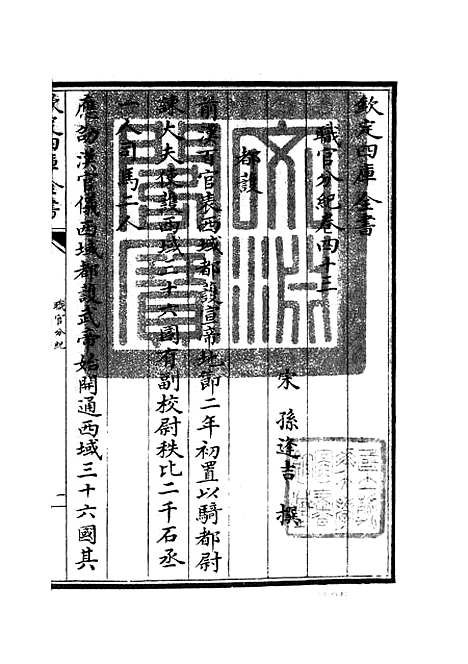 欽定四庫全書
職官分紀卷四十三
宋 孫逢吉 撰
都護
前漢百官表西域都護宣帝地節二年初置以騎都尉
諫大夫使護西域三十六國有副校尉秩比二千石丞
一人司馬二人
應劭漢官儀西域都護武帝始開通西域三十六國其
欽定四庫全書
職官分紀
一
文淵閣寶